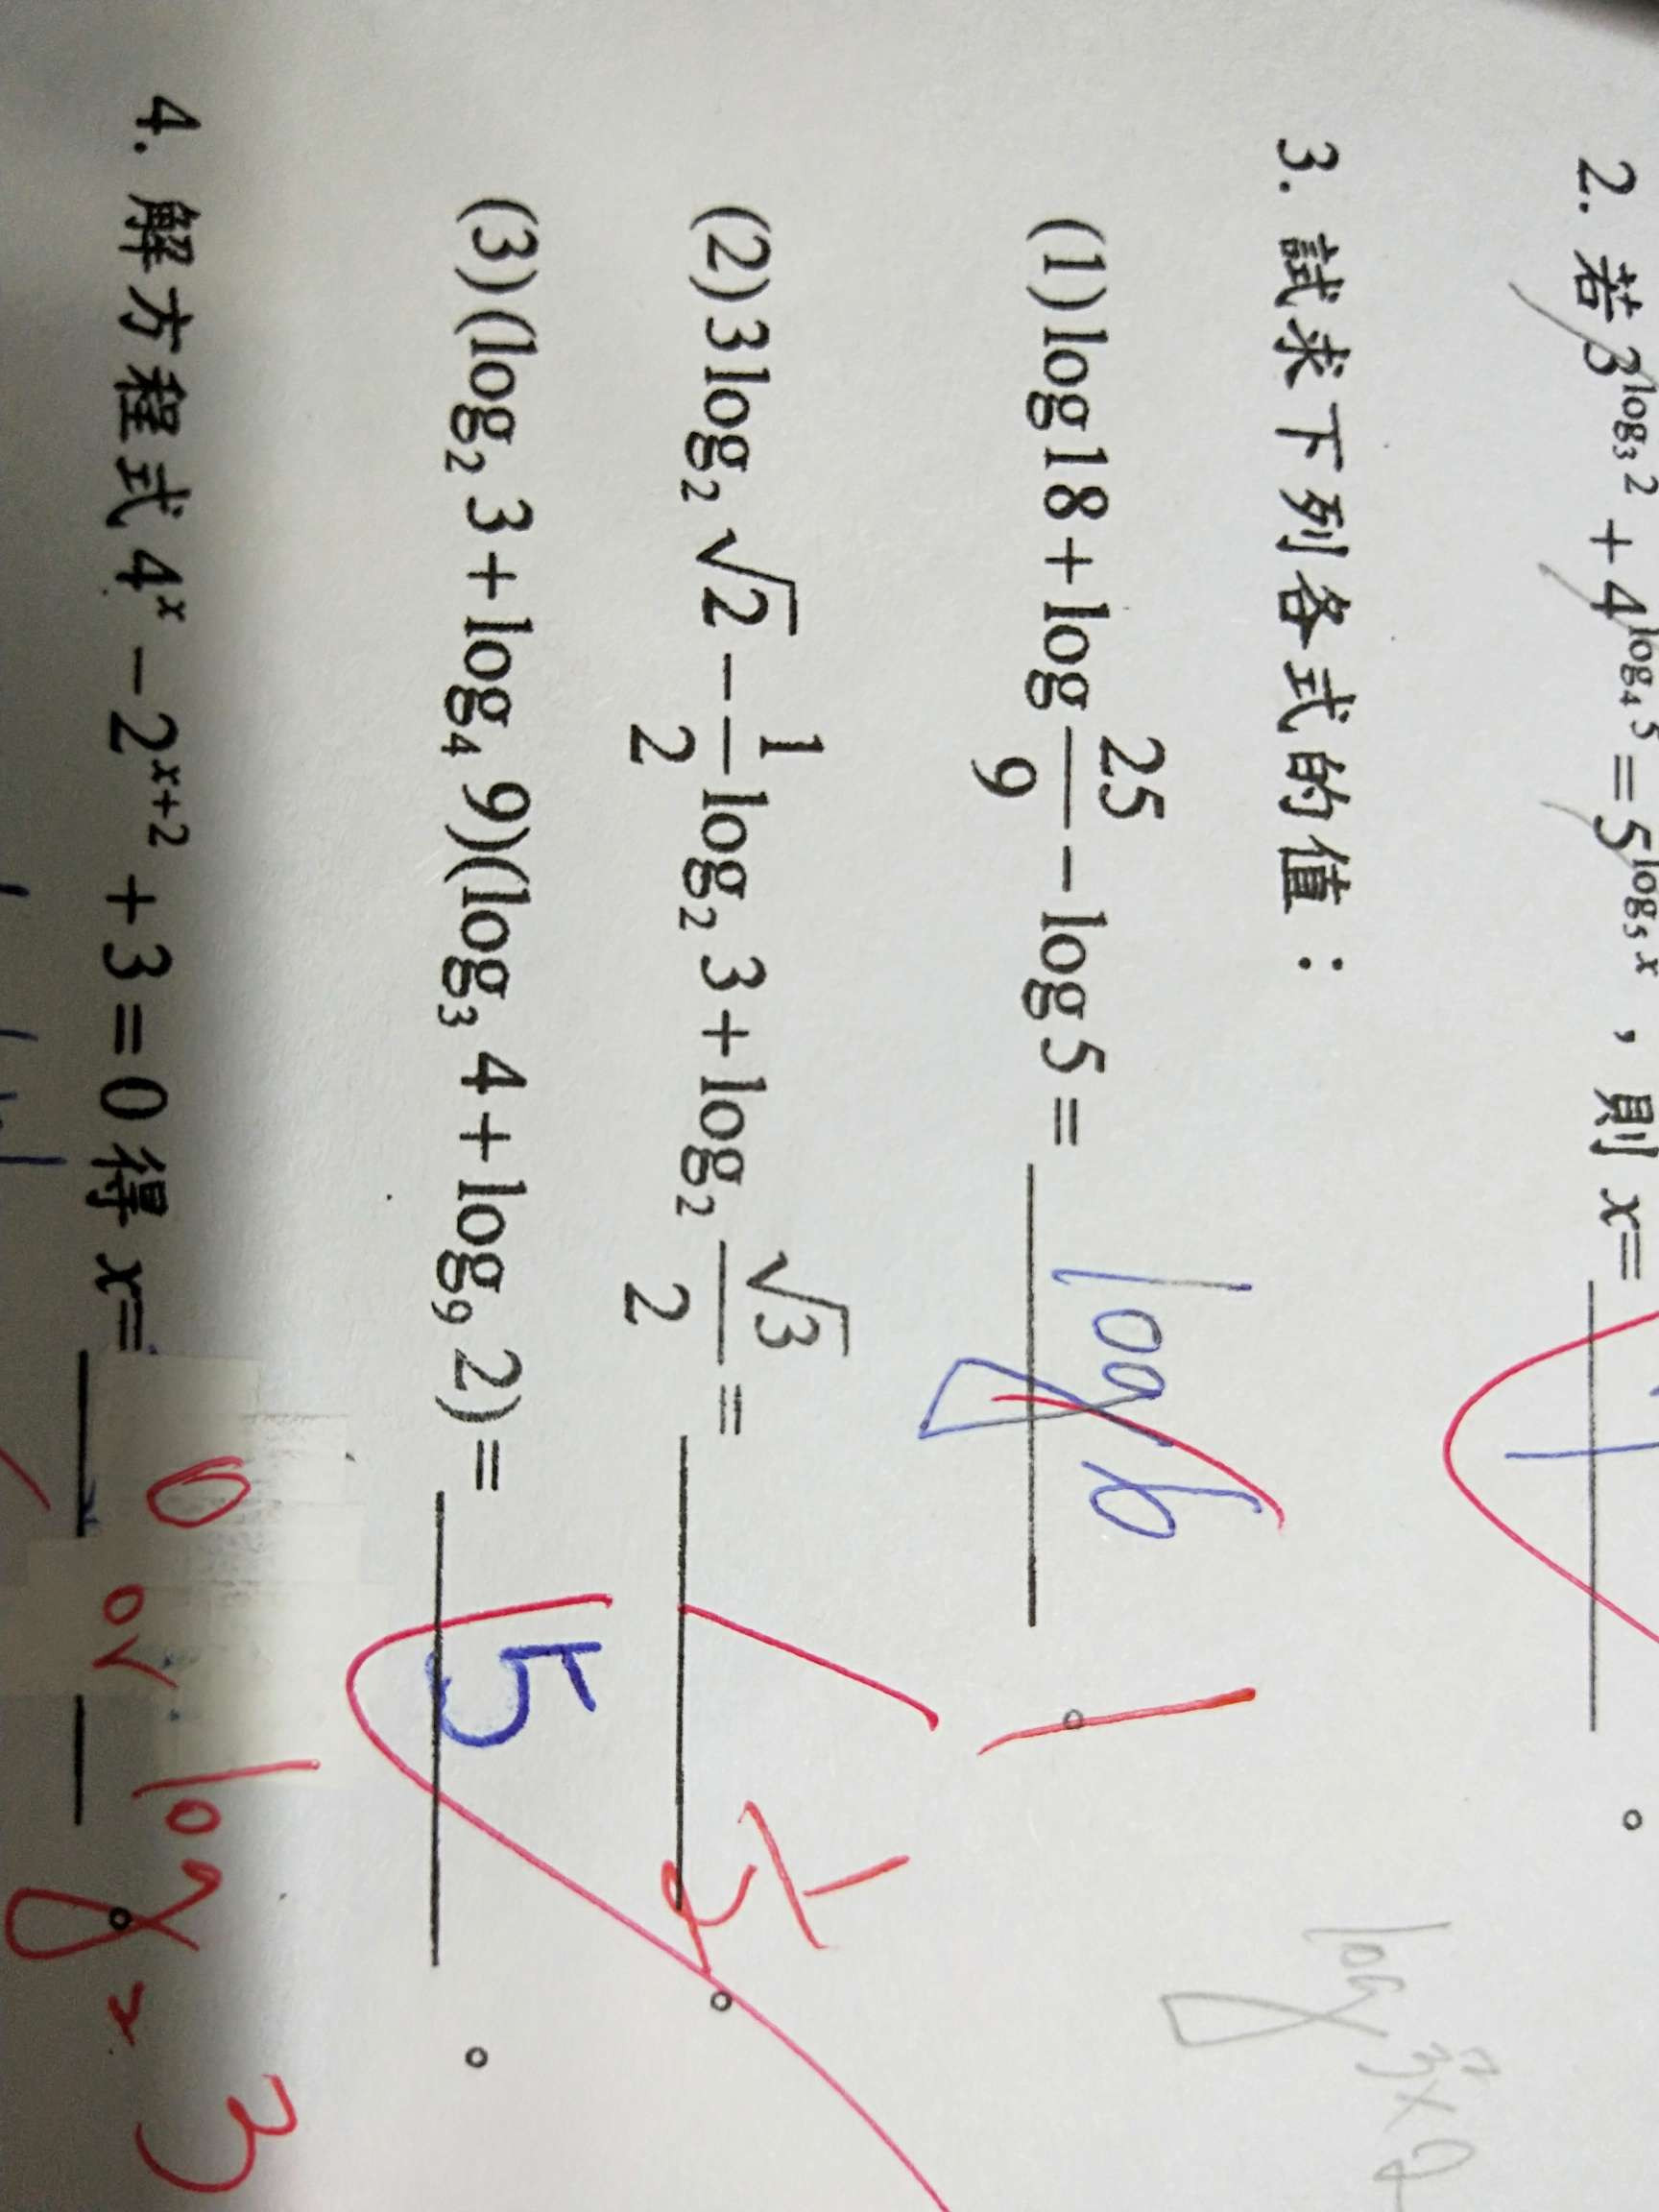 2. 若 3^{log₃ 2} + 4^{log₄ 5} = 5^{log₅ x}，則 x= 7 。
3. 試求下列各式的值：
(1) log18 + log 25/9 − log5 = log 6 。 1
(2) 3log₂ √2 − 1/2 log₂ 3 + log₂ √3/2 = 。 1/2
(3) (log₂ 3 + log₄ 9)(log₃ 4 + log₉ 2) = 5 。
4. 解方程式 4^x − 2^{x+2} + 3 = 0 得 x= 0 or log₂ 3 。